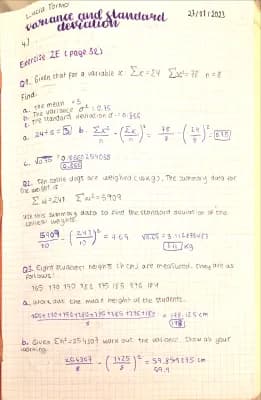 Lucía Tormo
27/01/2023
variance and standard
deviation
4)
Exercise 2E (page 32)
Q1. Given that for a variable x Σx=24 Σx²=78 n=8
Find:
a. the mean =3
b. The variance σ² = 0.75
c. the standard deviation σ = 0.866
a. 24÷8 = 3 b. Σx²/n - (Σx/n)² = 78/8 - (24/8)² = 0.75
c. √0.75 = 0.8660254038
0.866
Q2. Ten collie dogs are weighed (w kg). The summary data for
the weight is
Σw=241 Σw²=5909
Use this summary data to find the standard deviation of the
collies' weights.
5909/10 - (241/10)² =
kg
Q3. Eight students heights (h cm) are measured. They are as
follows:
165 170 190 180 175 185 176 184
a. work out the mean height of the students.
= 178.125 cm
178
b. Given Σh²=254307 work out the variance. Show all your
working.
254307/8 - (1425/8)² = 59.859375 cm
59.9